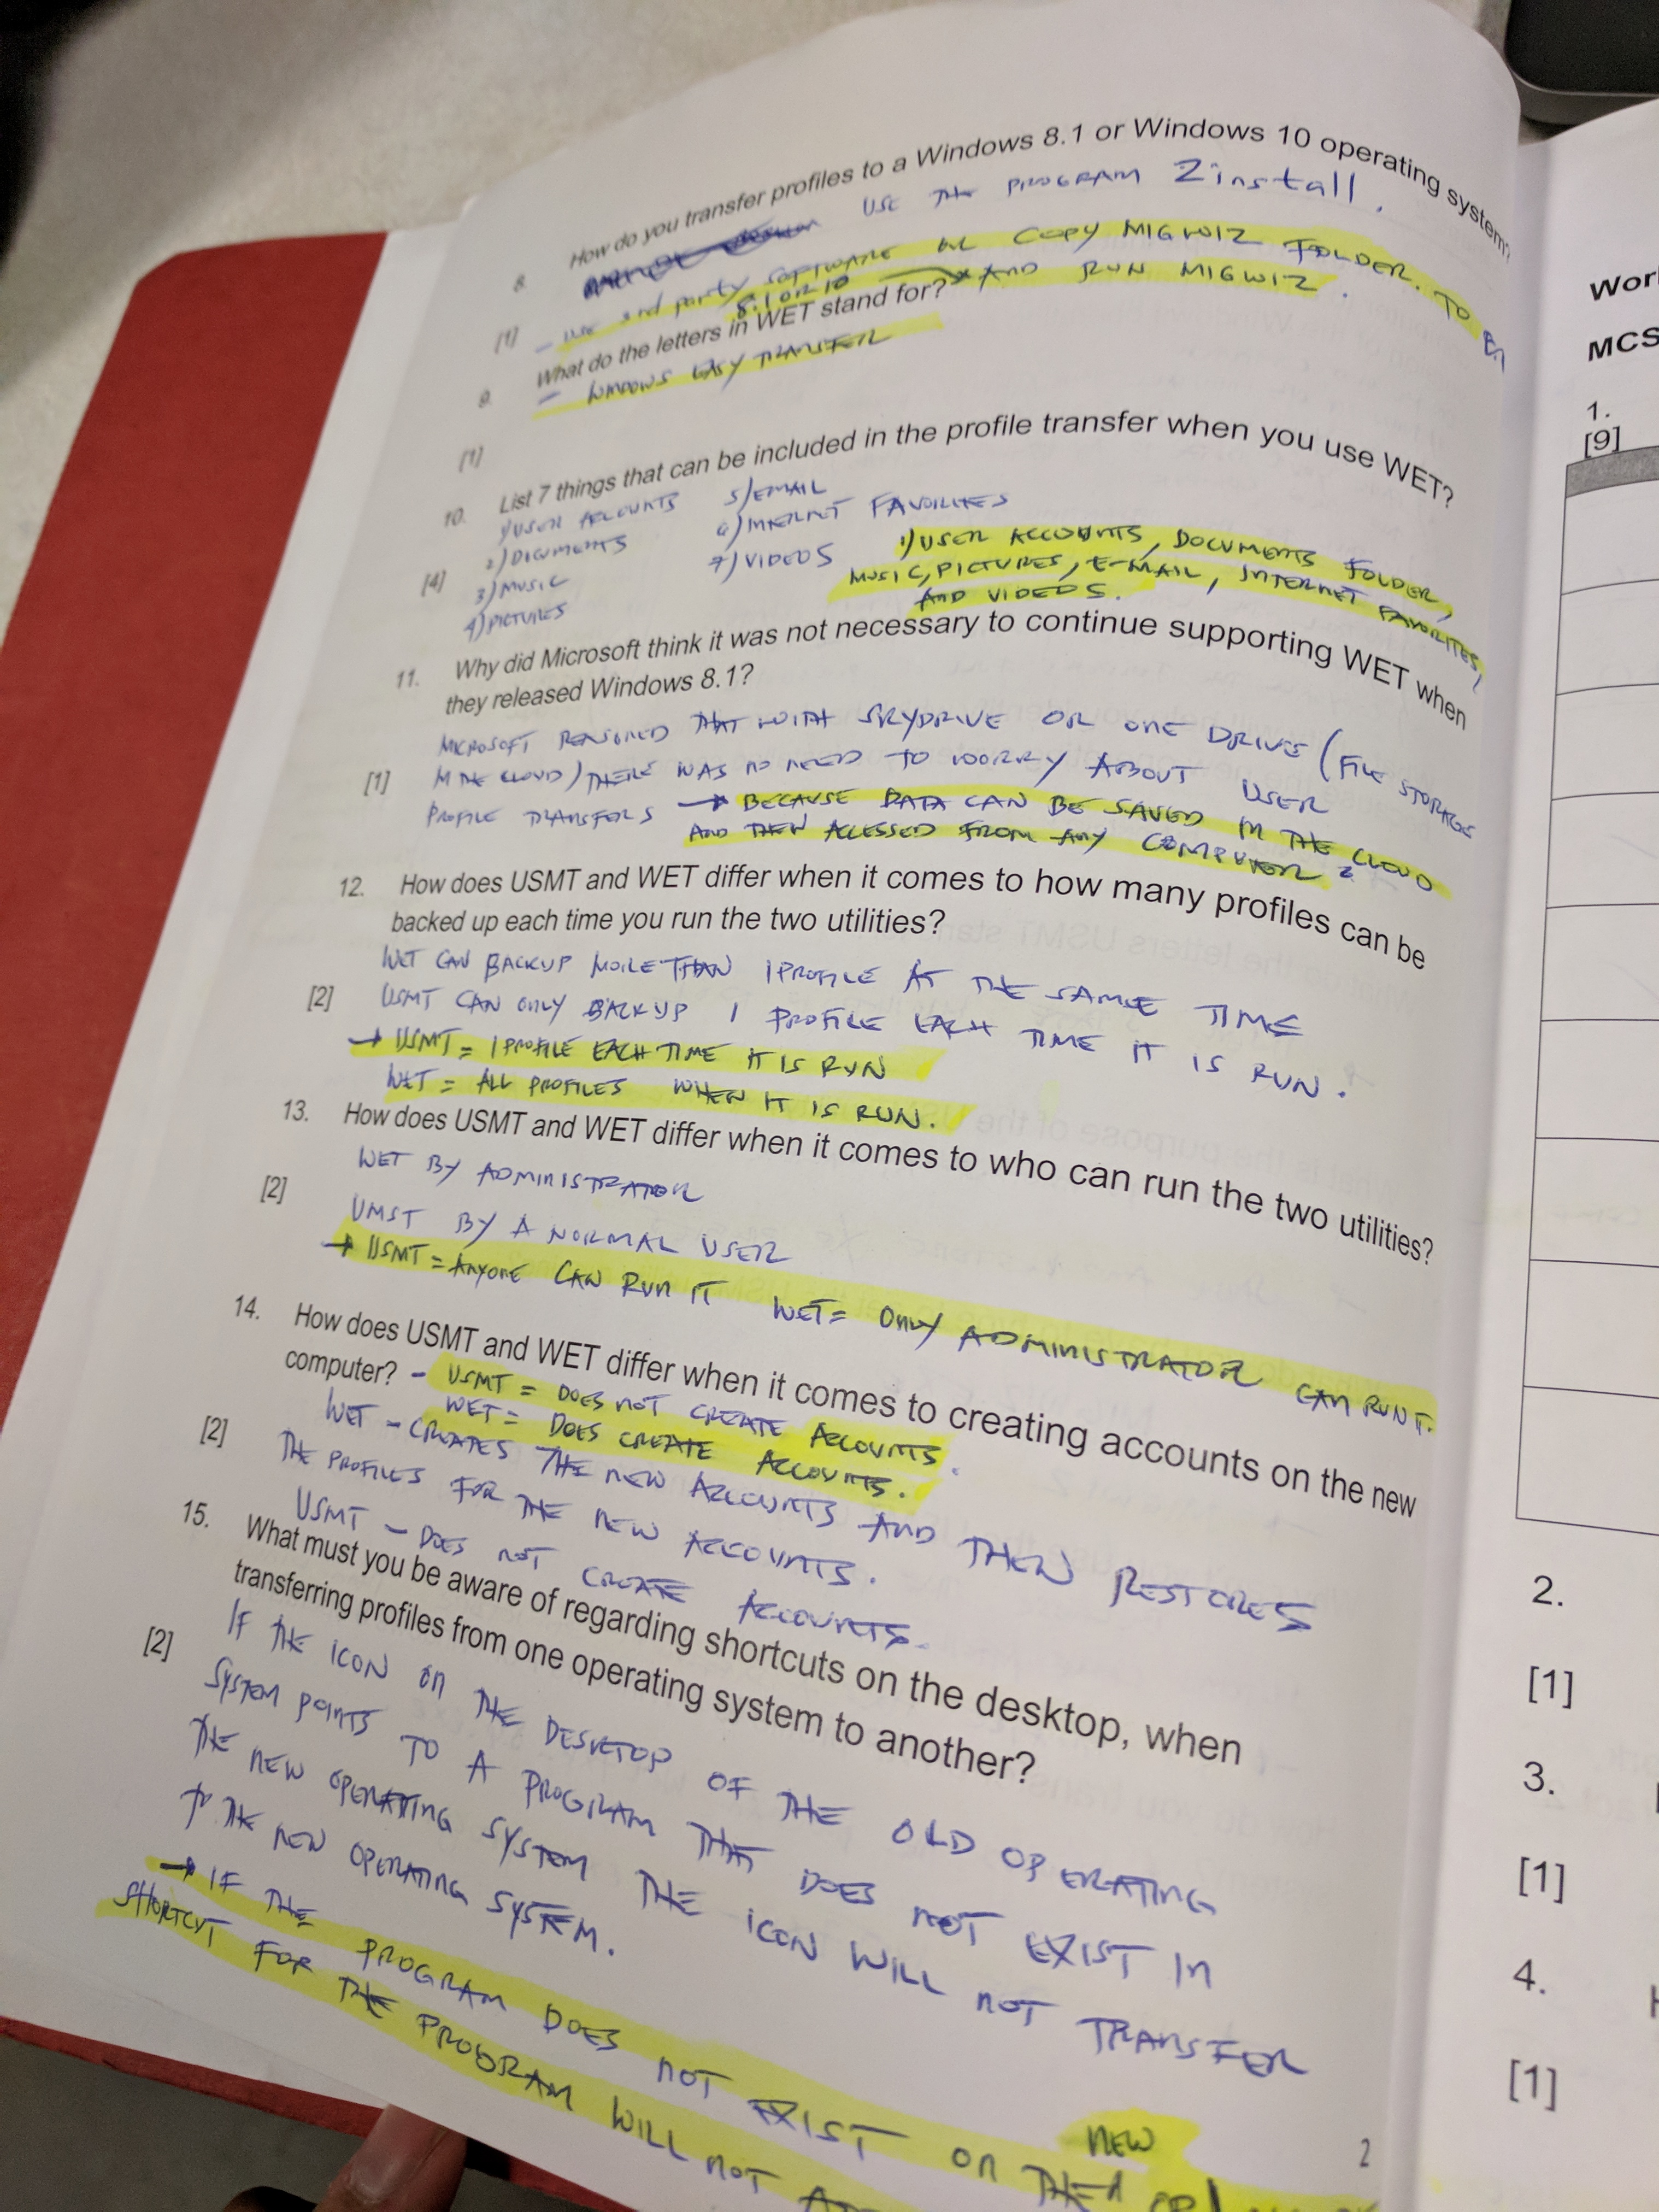 8. How do you transfer profiles to a Windows 8.1 or Windows 10 operating system?
USE THE PROGRAM Zinstall.
[1] - USE 3rd party SOFTWARE OR COPY MIGWIZ FOLDER. TO
8.1 OR 10 → AND RUN MIGWIZ.
9. What do the letters in WET stand for?
- WINDOWS EASY TRANSFER
[1]
10. List 7 things that can be included in the profile transfer when you use WET?
1) USER ACCOUNTS 5) EMAIL
2) DOCUMENTS 6) INTERNET FAVORITES
[4] 3) MUSIC 7) VIDEOS
4) PICTURES
1) USER ACCOUNTS, DOCUMENTS FOLDER,
MUSIC, PICTURES, E-MAIL, INTERNET FAVORITES,
AND VIDEOS.
11. Why did Microsoft think it was not necessary to continue supporting WET when
they released Windows 8.1?
MICROSOFT REASONED THAT WITH SKYDRIVE OR ONE DRIVE (FILE STORAGE
[1] IN THE CLOUD) THERE WAS NO NEED TO WORRY ABOUT USER
PROFILE TRANSFERS → BECAUSE DATA CAN BE SAVED IN THE CLOUD
AND THEN ACCESSED FROM ANY COMPUTER
12. How does USMT and WET differ when it comes to how many profiles can be
backed up each time you run the two utilities?
WET CAN BACKUP MORE THAN 1 PROFILE AT THE SAME TIME
[2] USMT CAN ONLY BACKUP 1 PROFILE EACH TIME IT IS RUN.
→ USMT = 1 PROFILE EACH TIME IT IS RUN
WET = ALL PROFILES WHEN IT IS RUN.
13. How does USMT and WET differ when it comes to who can run the two utilities?
WET BY ADMINISTRATOR
[2] UMST BY A NORMAL USER
→ USMT = ANYONE CAN RUN IT WET = ONLY ADMINISTRATOR CAN RUN IT.
14. How does USMT and WET differ when it comes to creating accounts on the new
computer? - USMT = DOES NOT CREATE ACCOUNTS.
WET = DOES CREATE ACCOUNTS.
[2] WET - CREATES THE NEW ACCOUNTS AND THEN RESTORES
THE PROFILES FOR THE NEW ACCOUNTS.
USMT - DOES NOT CREATE ACCOUNTS.
15. What must you be aware of regarding shortcuts on the desktop, when
transferring profiles from one operating system to another?
[2] IF THE ICON ON THE DESKTOP OF THE OLD OPERATING
SYSTEM POINTS TO A PROGRAM THAT DOES NOT EXIST IN
THE NEW OPERATING SYSTEM THE ICON WILL NOT TRANSFER
TO THE NEW OPERATING SYSTEM.
→ IF THE PROGRAM DOES NOT EXIST ON THE NEW
SHORTCUT FOR THE PROGRAM WILL NOT
2
Wor
MCS
1.
[9]
2.
[1]
3.
[1]
4.
[1]